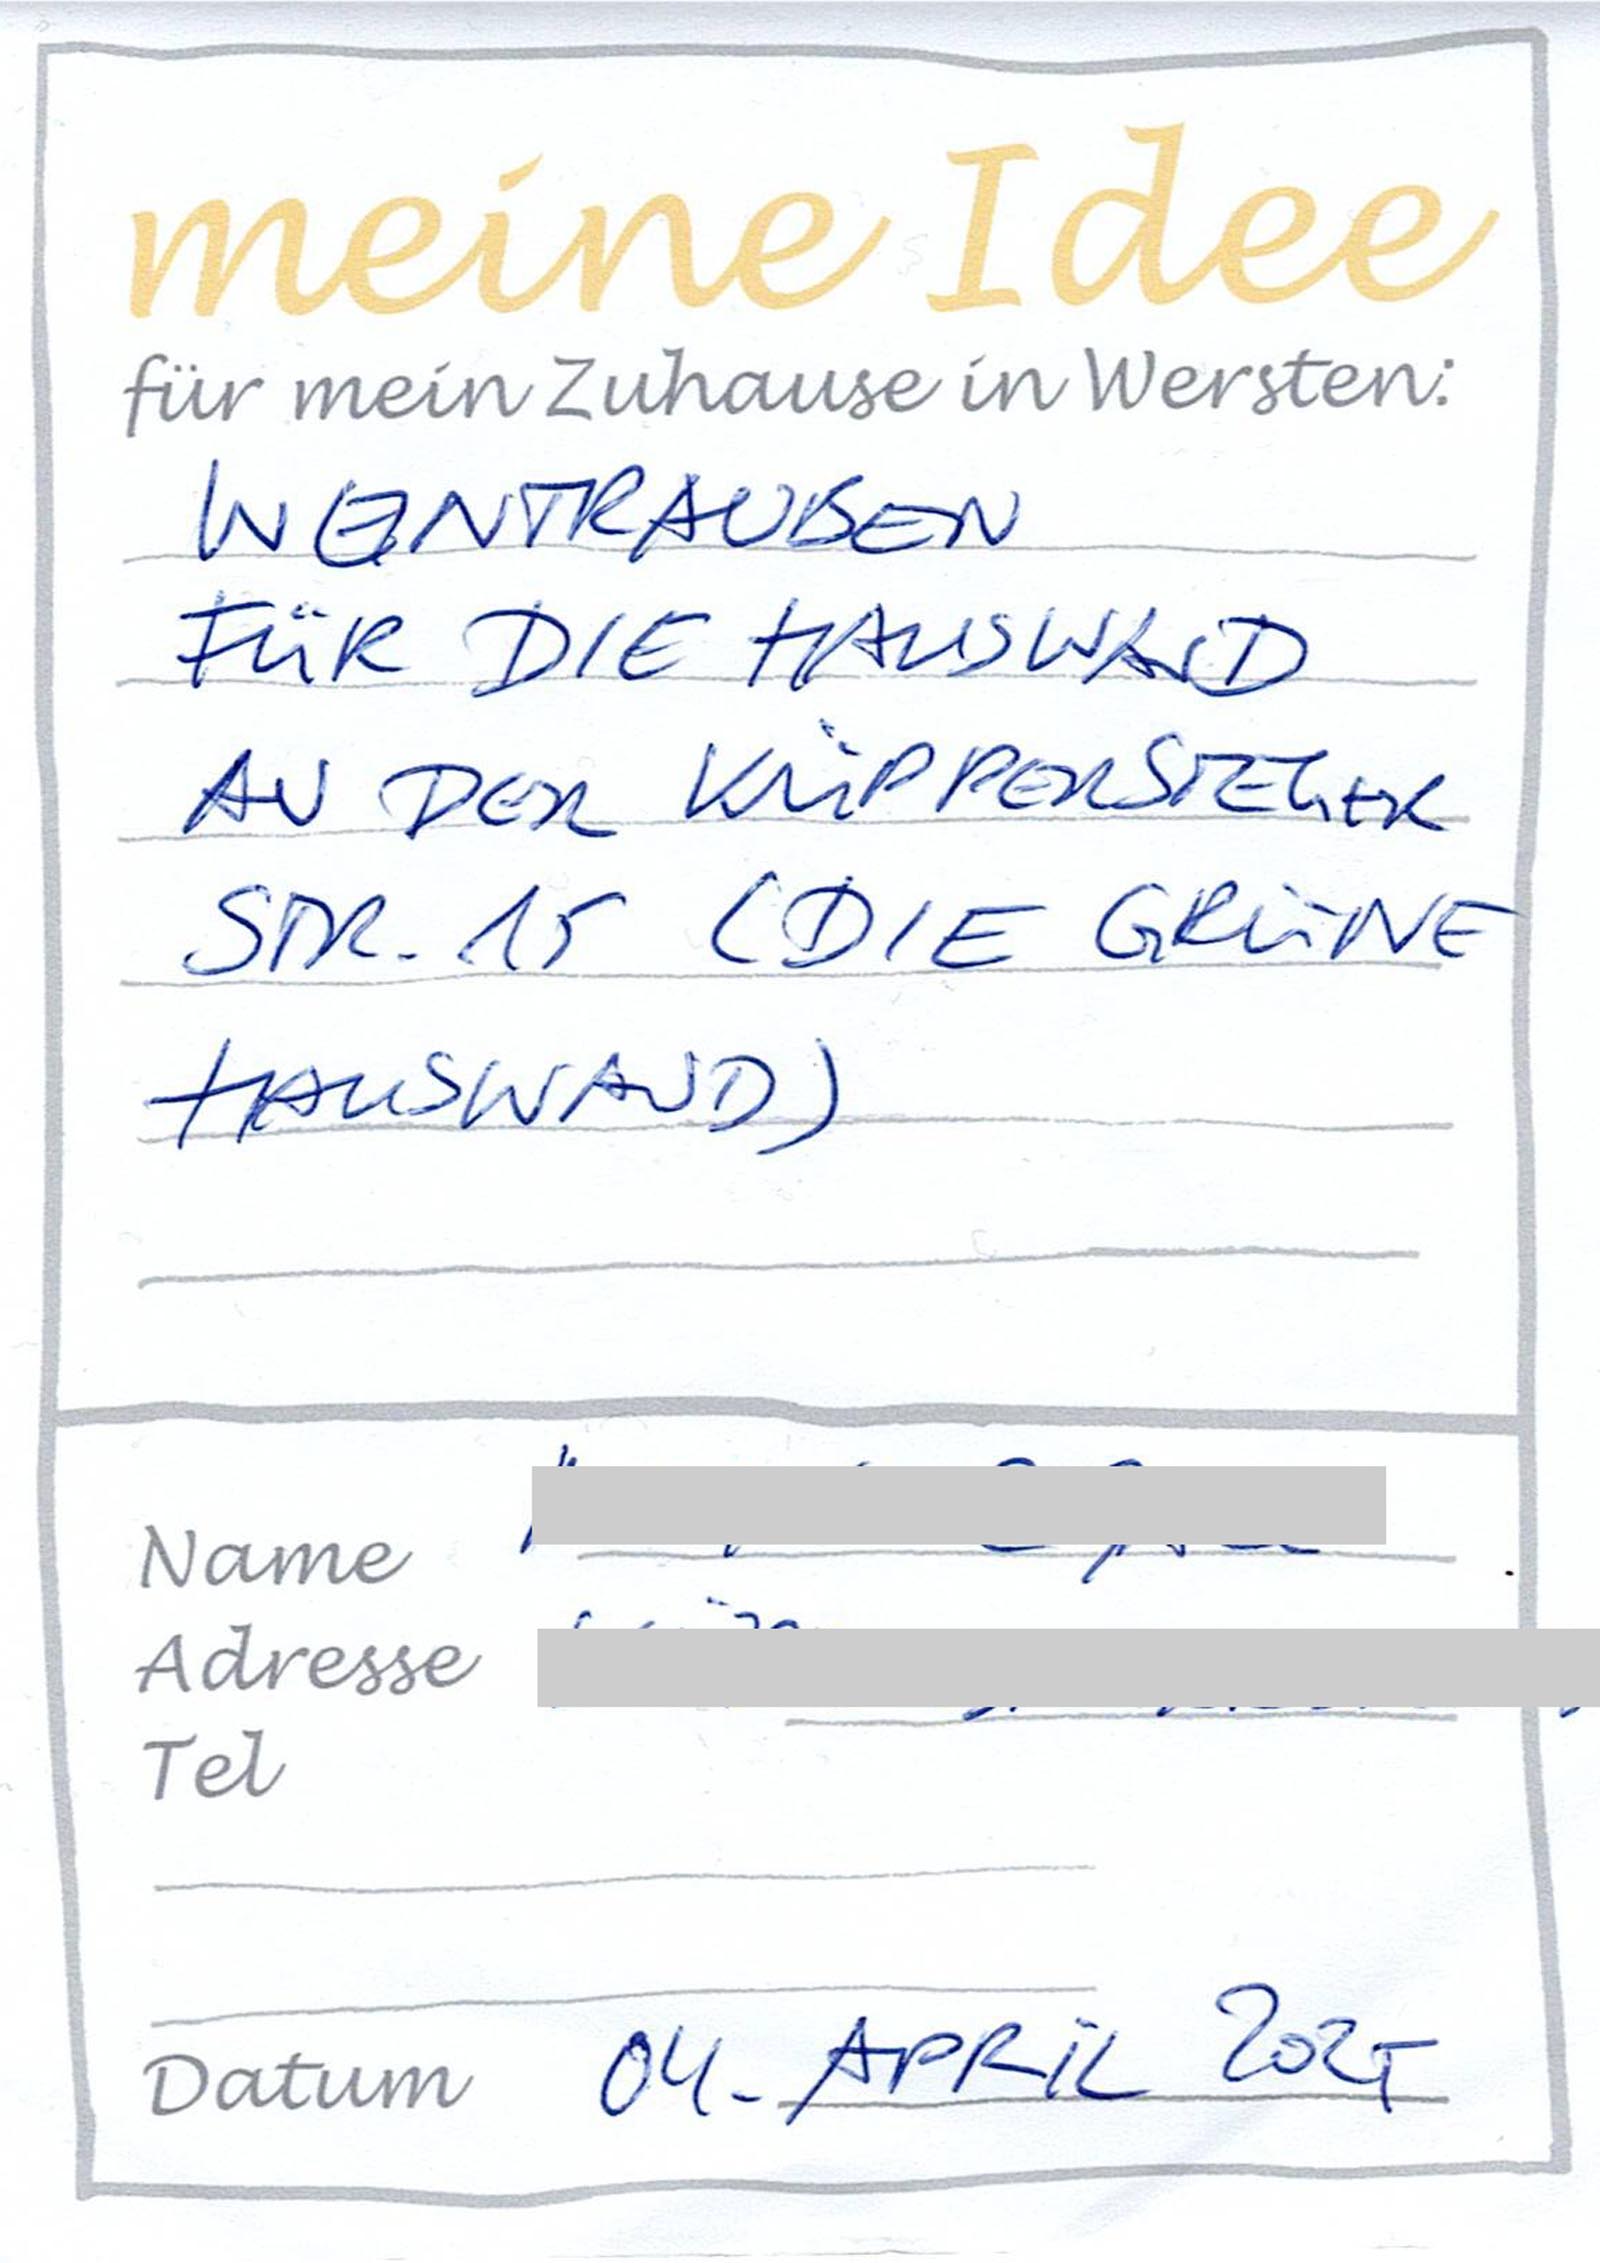 meine Idee
für mein Zuhause in Wersten:
WEINTRAUBEN
FÜR DIE HAUSWAND
AN DER KÜPPERSTEGER
STR. 15 (DIE GRÜNE
HAUSWAND)
Name
Adresse
Tel
Datum 04. APRIL 2025